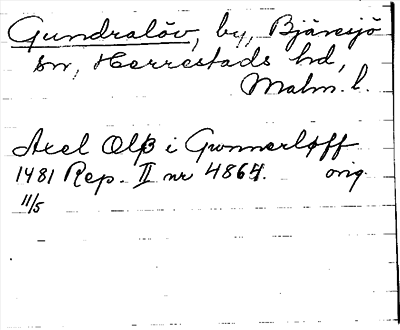 Gundralöv, by, Bjäresjö
sn, Herrestads hd,
Malm. l.
Axel Olß i Gwnnerløff
1481 Rep. II nr 4864. orig.
11/5